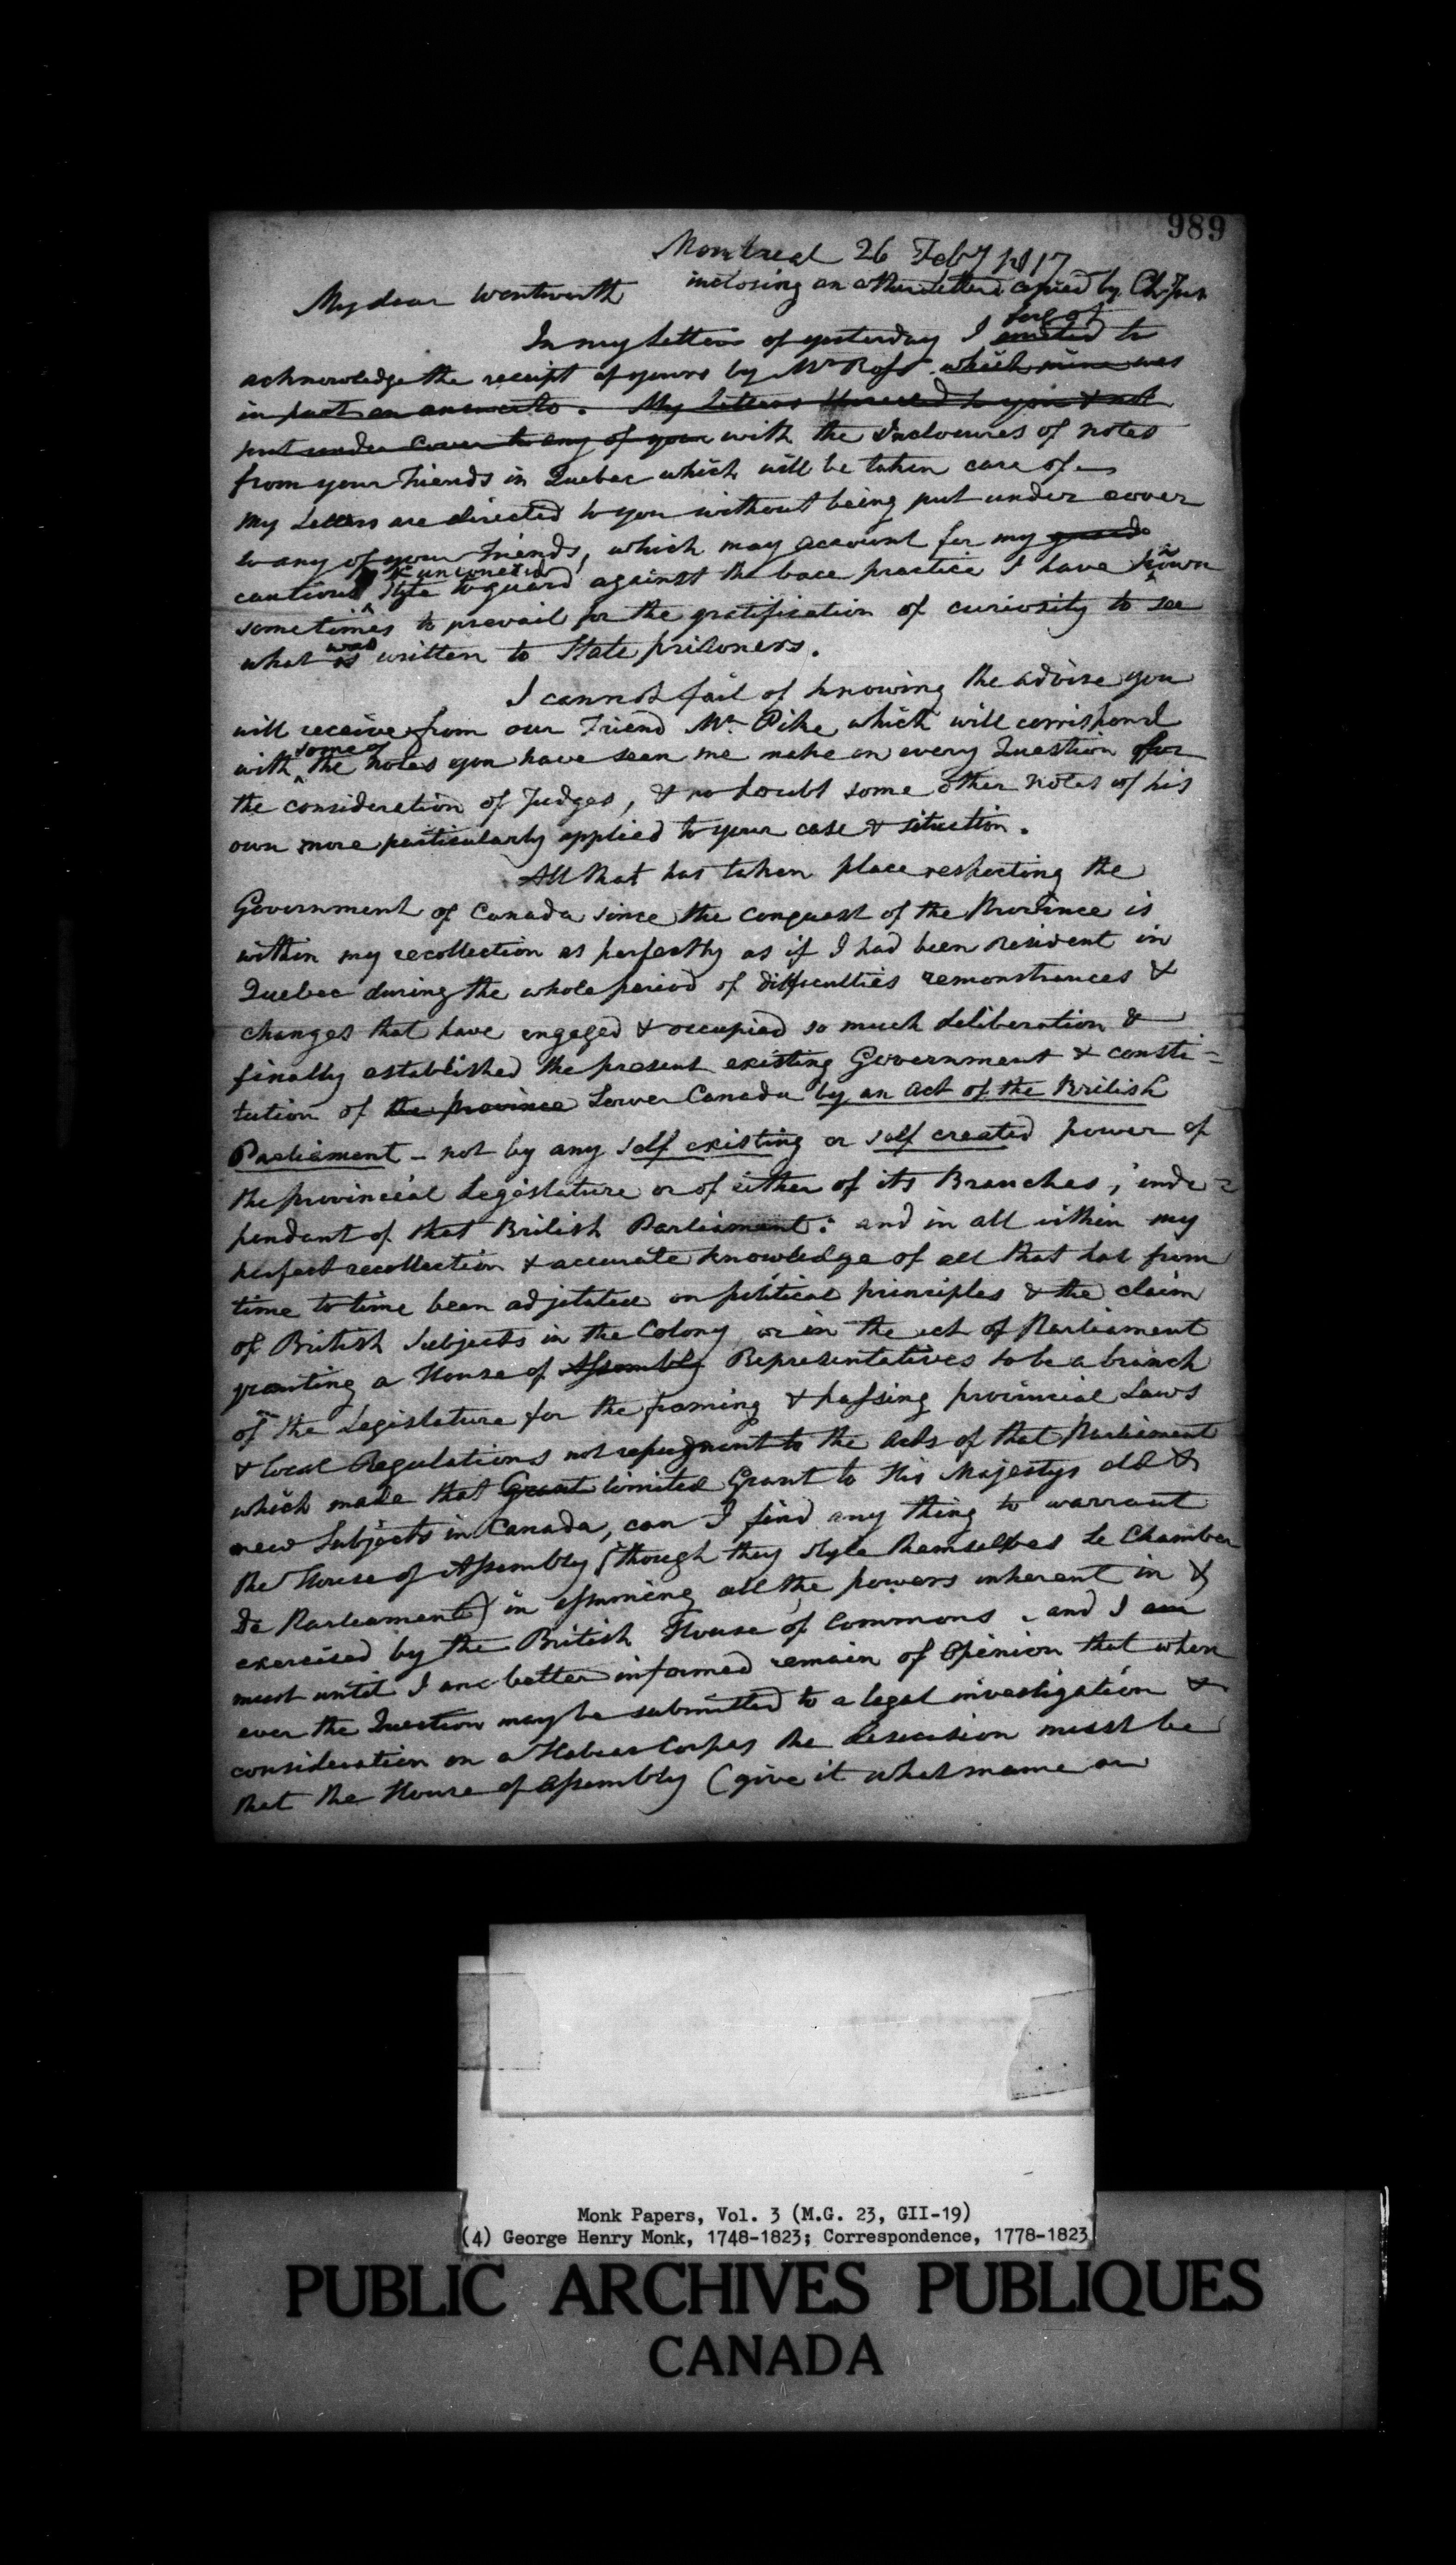 989
Montreal 26 Feby 1817
inclosing an other letter copied by Ch. Jus
My dear Wentworth
In my Letters of yesterday I omitted forgot to
acknowledge the receipt of yours by Mr Ross which mine was
in part an answer to. My Letters directed to you & not
put under cover to any of your with the Inclosures of notes
from your Friends in Quebec which will be taken care of
My Letters are directed to you without being put under cover
to any of your Friends, which may account for my guard
cautious & unconnected Style to guard against the base practice I have known
sometimes to prevail for the gratification of curiosity to see
what is was written to State prisoners.
I cannot fail of knowing the advise you
will receive from our Friend Mr Pike which will corrispond
with some of the notes you have seen me make on every Question for
the consideration of Judges, & no doubt some other notes of his
own more particularly applied to your case & situation.
All that has taken place respecting the
Government of Canada since the conquest of the Province is
within my recollection as perfectly as if I had been resident in
Quebec during the whole period of difficulties remonstrances &
changes that have engaged & occupied so much deliberation &
finally established the present existing Government & consti=
tution of the province Lower Canada by an Act of the British
Parliament - not by any self existing or self created power of
the provincial Legislature or of either of its Branches, inde=
pendant of that British Parliament: and in all within my
perfect recollection & accurate knowledge of all that has from
time to time been adjetated on political principles & the claim
of British Subjects in the Colony or in the act of Parliament
granting a House of Assembly Representatives to be a branch
of the Legislature for the framing & passing provincial Laws
& local Regulations not repugnant to the Acts of that Parliament
which made that Grant limited Grant to His Majestys old &
new Subjects in Canada, can I find any thing to warrant
the House of Assembly (though they style themselves Le Chamber
De Parliament) in assuming all the powers inherent in &
exercised by the British House of Commons. and I am
must until I am better informed remain of Opinion that when
ever the Question may be submitted to a legal investigation &
consideration on a Habeas Corpus the descision must be
that the House of Assembly (give it what name or
Monk Papers, Vol. 3 (M.G. 23, GII-19)
(4) George Henry Monk, 1748-1823; Correspondence, 1778-1823
PUBLIC ARCHIVES PUBLIQUES
CANADA